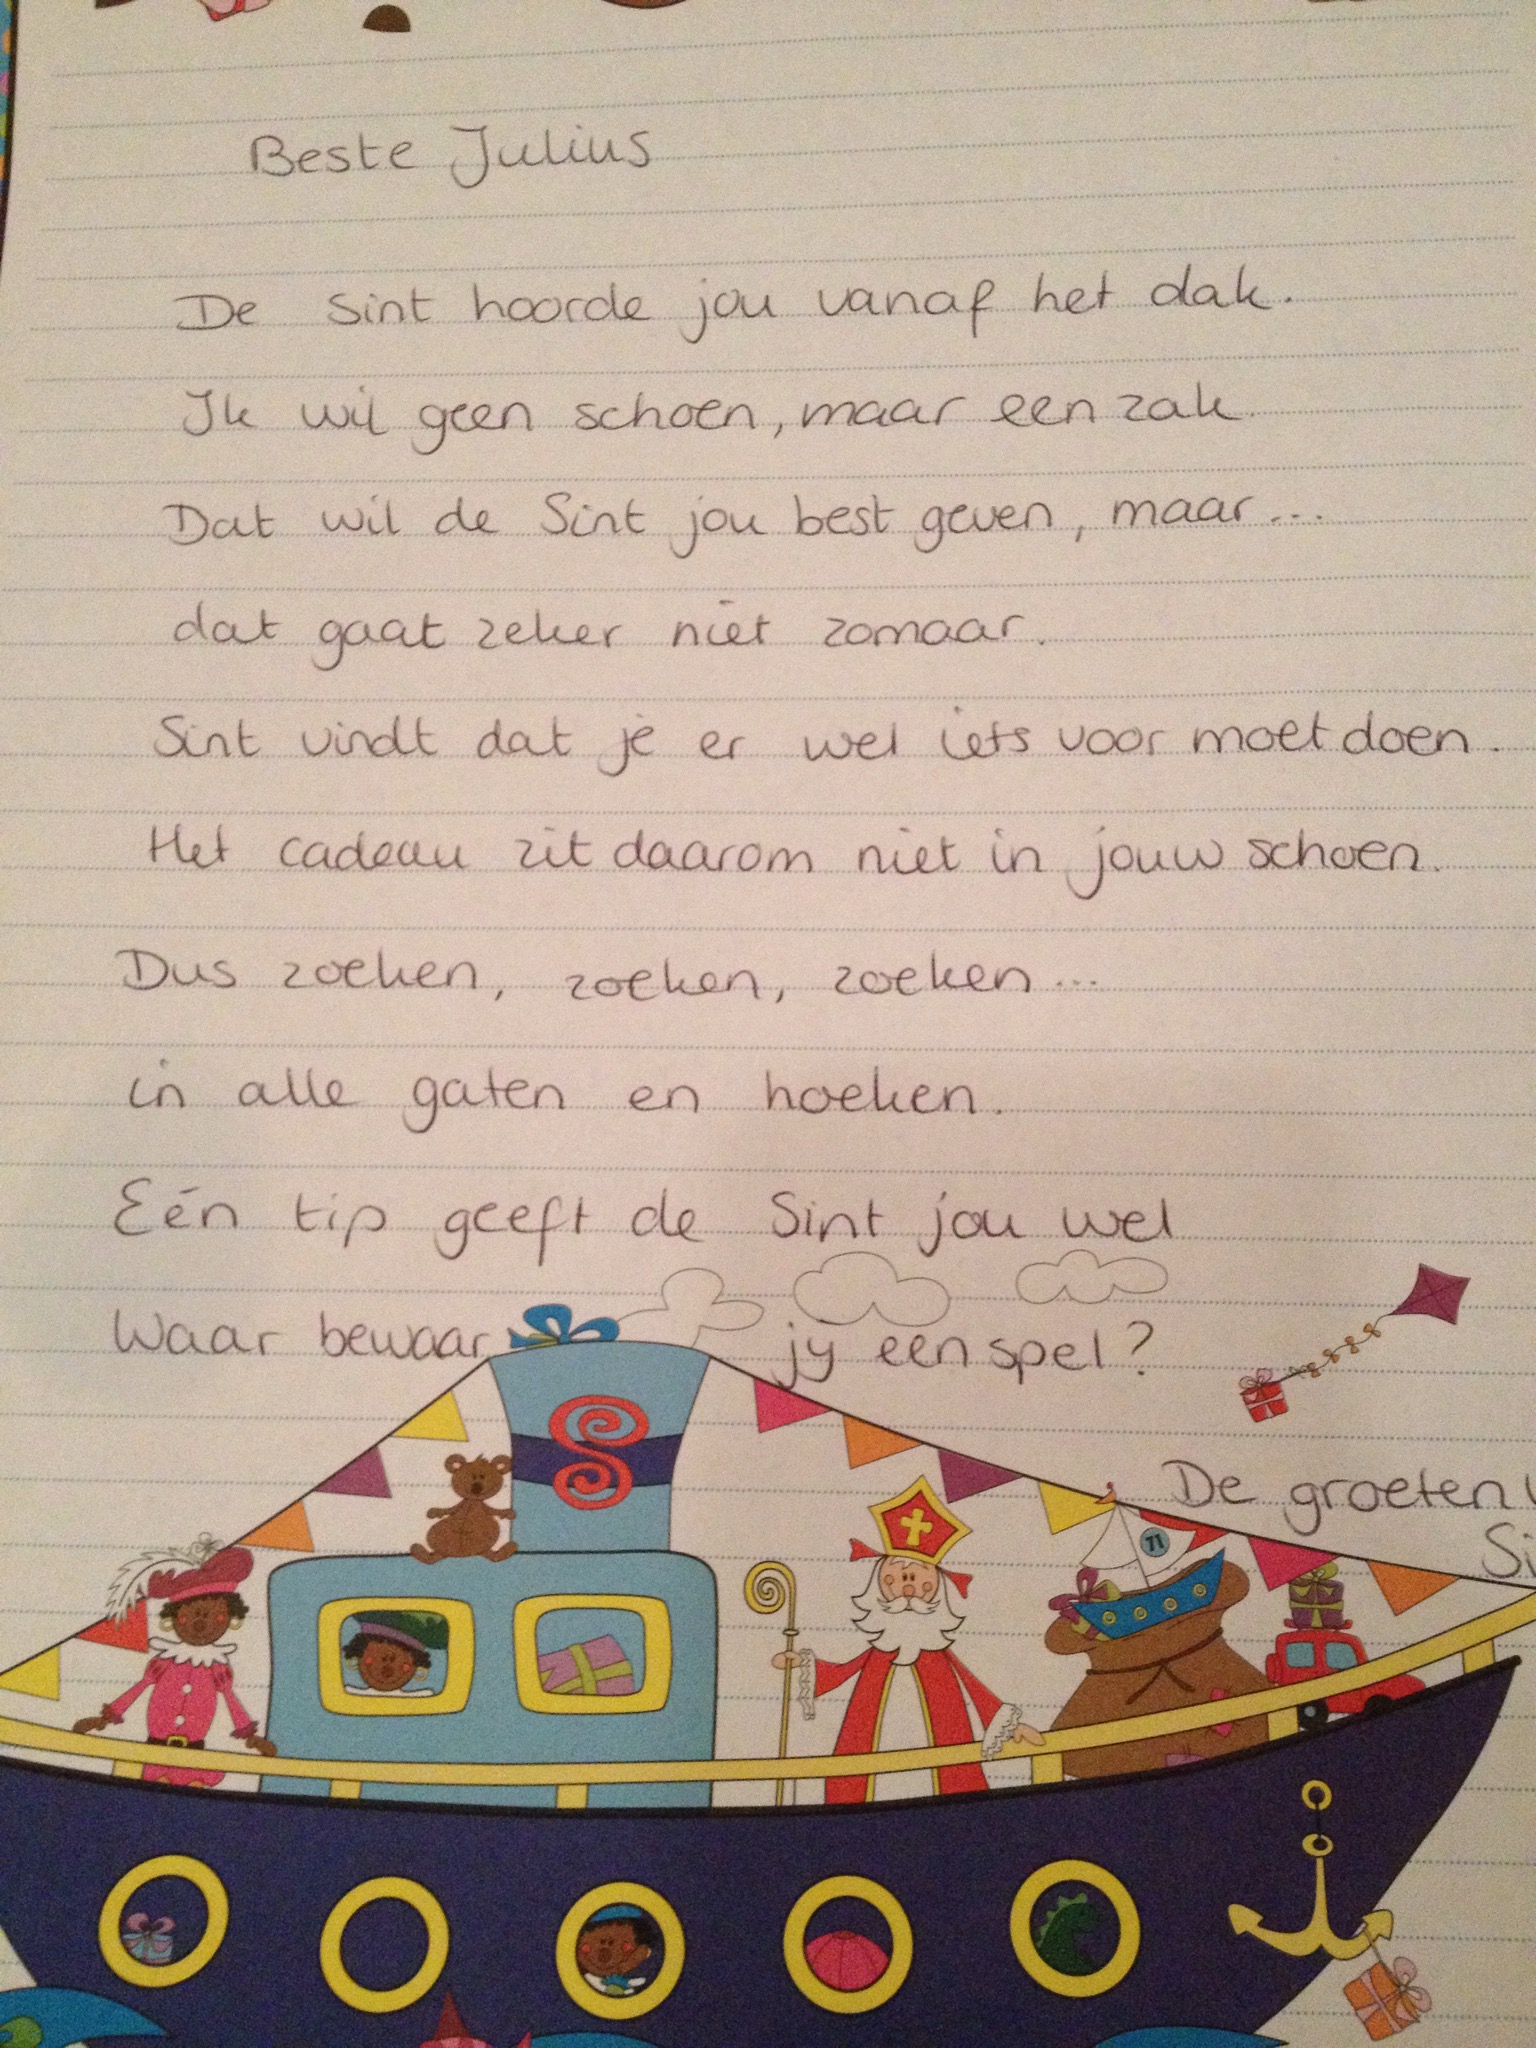 Beste Julius
De Sint hoorde jou vanaf het dak.
Ik wil geen schoen, maar een zak.
Dat wil de Sint jou best geven, maar...
dat gaat zeker niet zomaar.
Sint vindt dat je er wel iets voor moet doen.
Het cadeau zit daarom niet in jouw schoen.
Dus zoeken, zoeken, zoeken...
in alle gaten en hoeken.
Eén tip geeft de Sint jou wel
Waar bewaar jy een spel?
De groeten
S